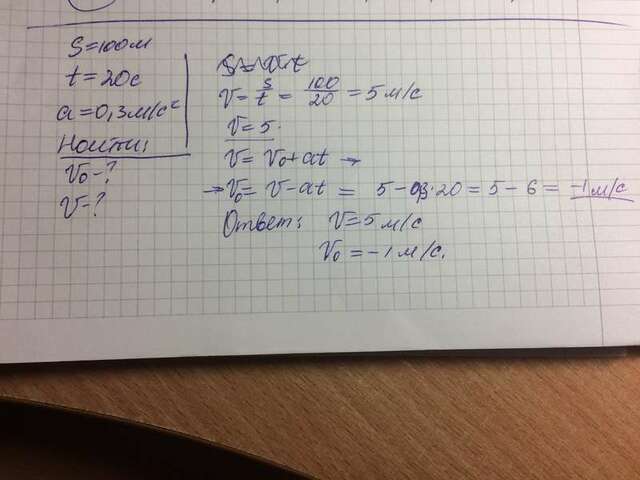 S=100м
t=20с
a=0,3м/с²
Найти:
V₀-?
V-?
V= S/t = 100/20 = 5м/с
V=5.
V= V₀+at →
→V₀= V-at = 5-0,3·20=5-6= -1м/с
Ответ: V=5м/с
V₀=-1м/с.